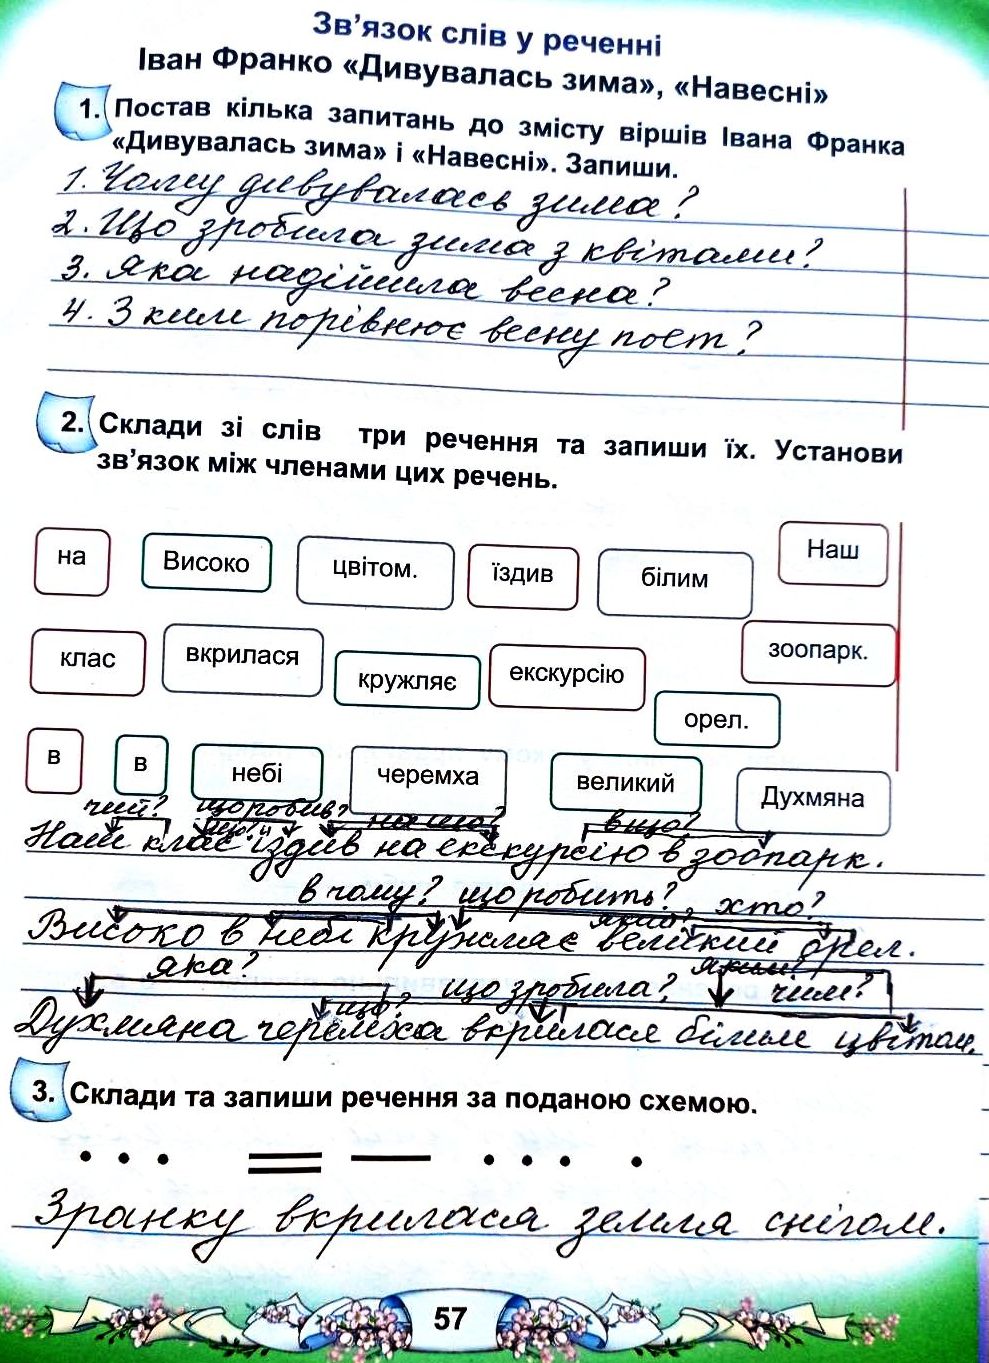 Зв’язок слів у реченні
Іван Франко «Дивувалась зима», «Навесні»
1. Постав кілька запитань до змісту віршів Івана Франка
«Дивувалась зима» і «Навесні». Запиши.
1. Чому дивувалась зима?
2. Що зробила зима з квітами?
3. Яка надійшла весна?
4. З ким порівнює весну поет?
2. Склади зі слів три речення та запиши їх. Установи
зв’язок між членами цих речень.
на Високо цвітом. їздив білим Наш
клас вкрилася кружляє екскурсію зоопарк.
орел.
в в небі черемха великий Духмяна
чий? що робив? на що? в що?
Наш клас їздив на екскурсію в зоопарк.
в чому? що робить? який? хто?
Високо в небі кружляє великий орел.
яка? що? що зробила? яким? чим?
Духмяна черемха вкрилася білим цвітом.
3. Склади та запиши речення за поданою схемою.
Зранку вкрилася земля снігом.
57